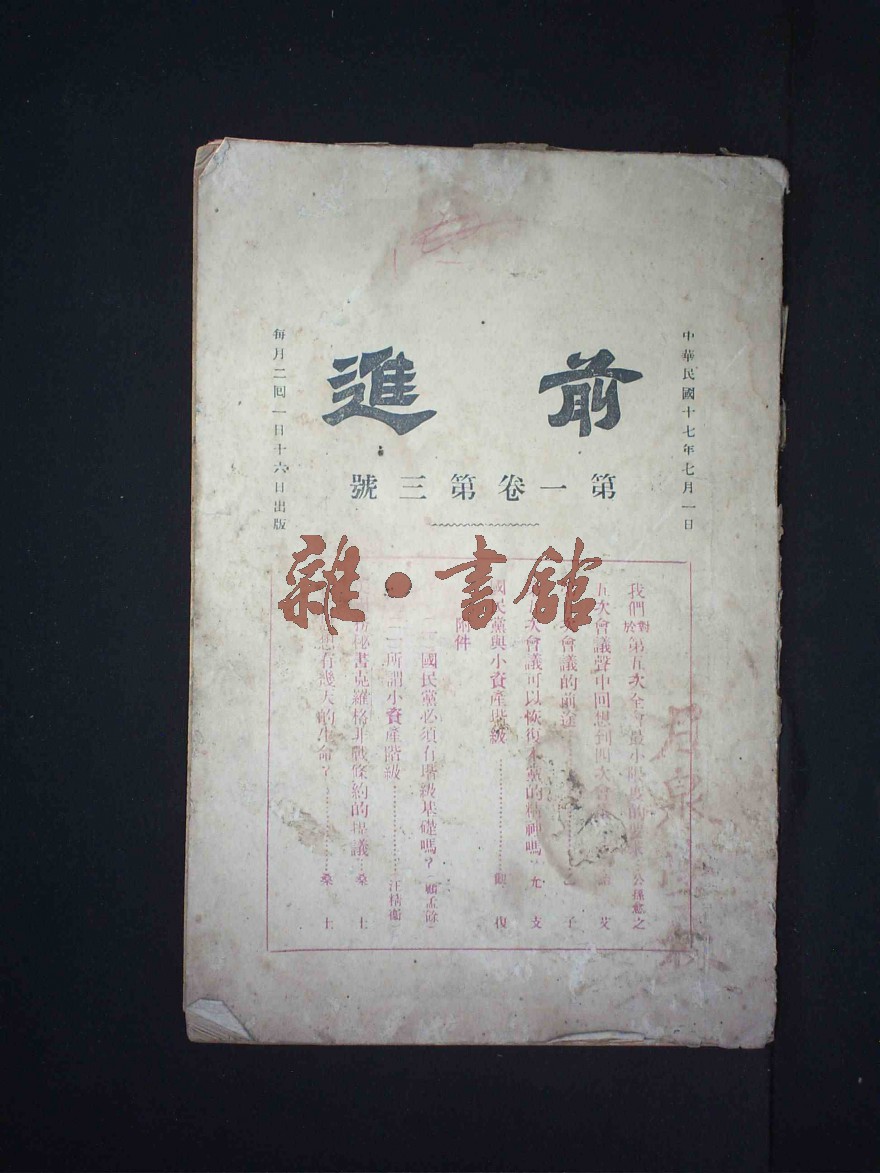 前進
第一卷第三號
中華民國十七年七月一日
每月二回一日十六日出版
雜·書館
我們對於第五次全會最小限度的 公孫愈之
五次會議聲中回想到四次會 艾
次會議的前途 子
次會議可以恢復本黨的精神嗎 允支
國民黨與小資產階級 復
附件
一 國民黨必須有階級基礎嗎？（顧孟餘）
二 所謂小資產階級 汪精衛
秘書克羅格非戰條約的提議 桑士
還有幾天的生命？ 桑士
月泉